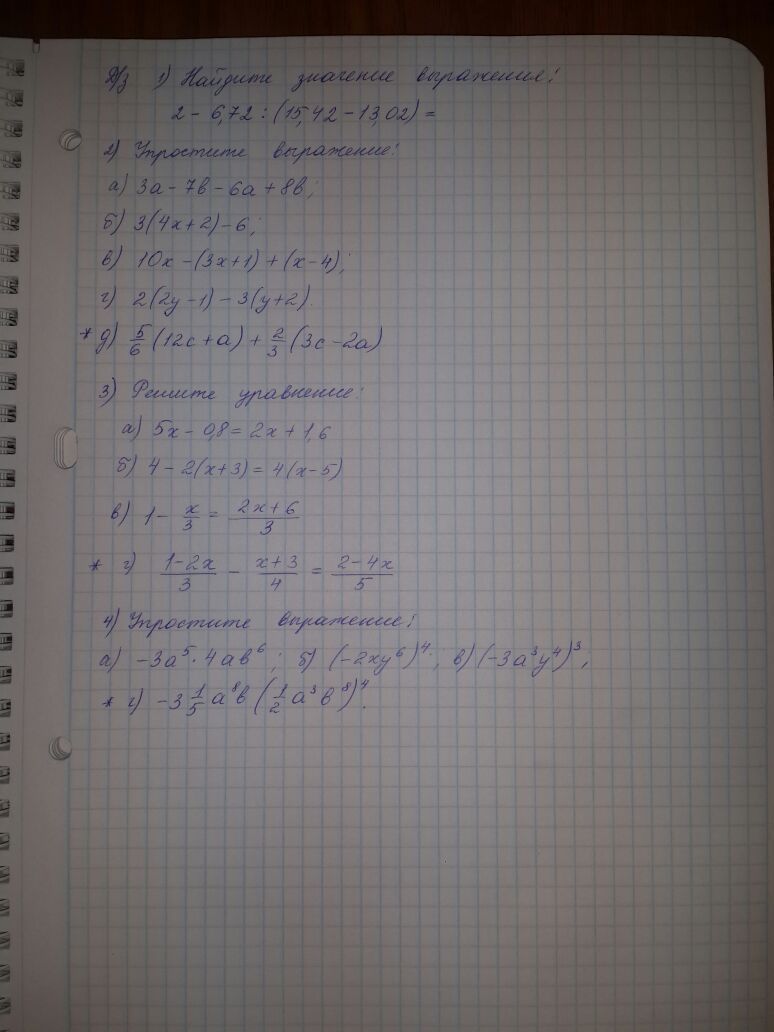 Д/з 1) Найдите значение выражения:
2 - 6,72 : (15,42 - 13,02) =
2) Упростите выражение:
а) 3а - 7в - 6а + 8в;
б) 3(4х + 2) - 6;
в) 10х - (3х + 1) + (х - 4);
г) 2(2у - 1) - 3(у + 2).
* д) 5/6 (12с + а) + 2/3 (3с - 2а)
3) Решите уравнение:
а) 5х - 0,8 = 2х + 1,6
б) 4 - 2(х + 3) = 4(х - 5)
в) 1 - х/3 = (2х + 6)/3
* г) (1 - 2х)/3 - (х + 3)/4 = (2 - 4х)/5
4) Упростите выражение:
а) -3а⁵ · 4ав⁶; б) (-2ху⁶)⁴; в) (-3а³у⁴)³;
* г) -3 1/5 а⁸в (1/2 а³в⁸)⁴.